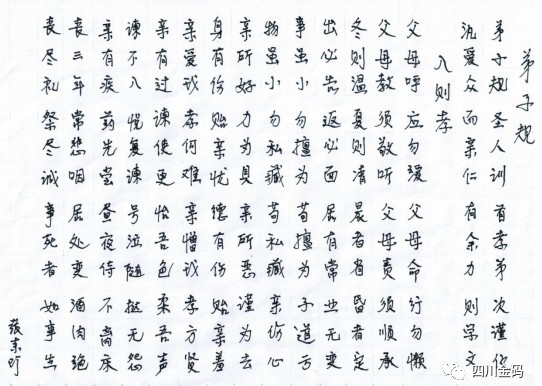 弟子规
弟子规 圣人训 首孝弟 次谨信
汎爱众 而亲仁 有余力 则学文
入则孝
父母呼 应勿缓 父母命 行勿懒
父母教 须敬听 父母责 须顺承
冬则温 夏则凊 晨者省 昏者定
出必告 返必面 居有常 业无变
事虽小 勿擅为 苟擅为 子道亏
物虽小 勿私藏 苟私藏 亲伤心
亲所好 力为具 亲所恶 谨为去
身有伤 贻亲忧 德有伤 贻亲羞
亲爱我 孝何难 亲憎我 孝方贤
亲有过 谏使更 怡吾色 柔吾声
谏不入 悦复谏 号泣随 挞无怨
亲有疾 药先尝 昼夜侍 不离床
丧三年 常悲咽 居处变 酒肉绝
丧尽礼 祭尽诚 事死者 如事生
四川金码